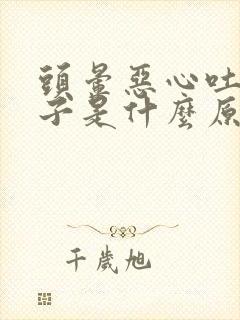 頭暈惡心吐
子是什麼原
千歲旭